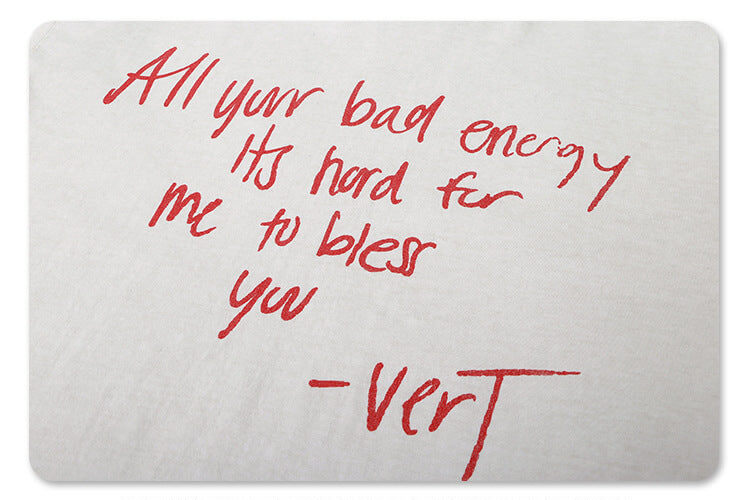 All your bad energy
It's hard for
me to bless
you
-Vert